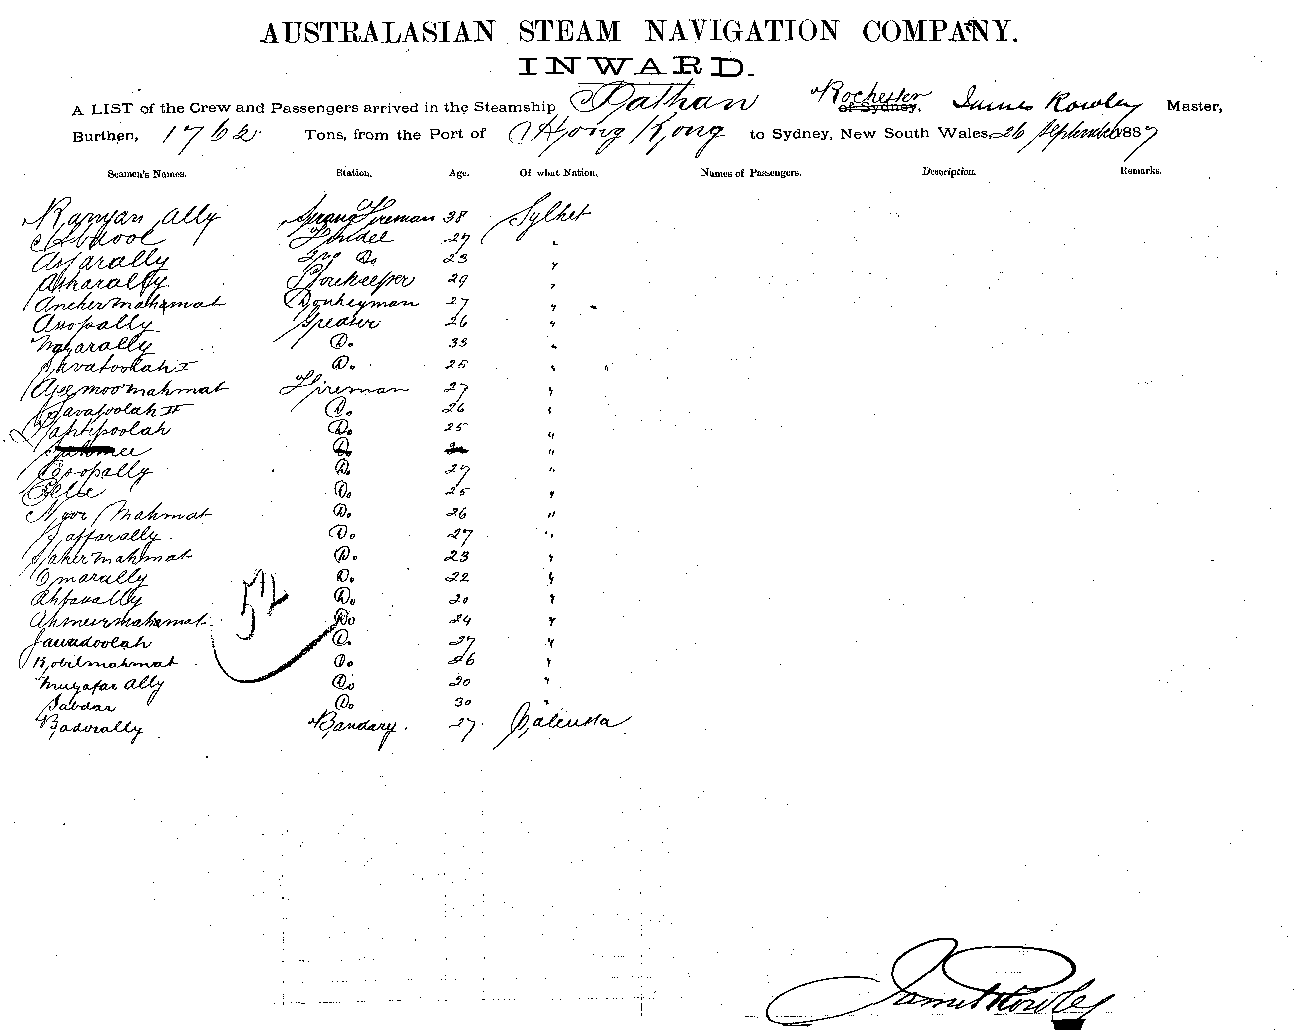 AUSTRALASIAN STEAM NAVIGATION COMPANY.
INWARD.
A LIST of the Crew and Passengers arrived in the Steamship Pathan Rochester of Sydney, James Rowley Master,
Burthen, 1762 Tons, from the Port of Hong Kong to Sydney, New South Wales, 26 September 1887
Seamen's Names. Station. Age. Of what Nation. Names of Passengers. Description. Remarks.
Ally Fireman 38 Sylhet
Abdool Tindel 27 "
Asfarally 2nd Do 23 "
Asharally Storekeeper 29 "
Ancher mahamat Donkeyman 27 "
Asopally Greaser 26 "
Do. 33 "
Do. 25 "
Ajeemoo mahmat Fireman 27 "
II Do. 26 "
Do. 25 "
Do. "
Esopally Do. 27 "
Elie Do. 25 "
Noor Mahmat Do. 26 "
Jaffarally Do. 27 "
mahmat Do. 23 "
Omarally Do. 22 "
Do. 20 "
mahamat Do 24 "
Jawadoolah Do. 27 "
Kobilmahmat Do. 26 "
Ally Do. 20 "
Sabdar Do. 30 "
Badorally Bandary. 27 Calcutta
52
James Rowley